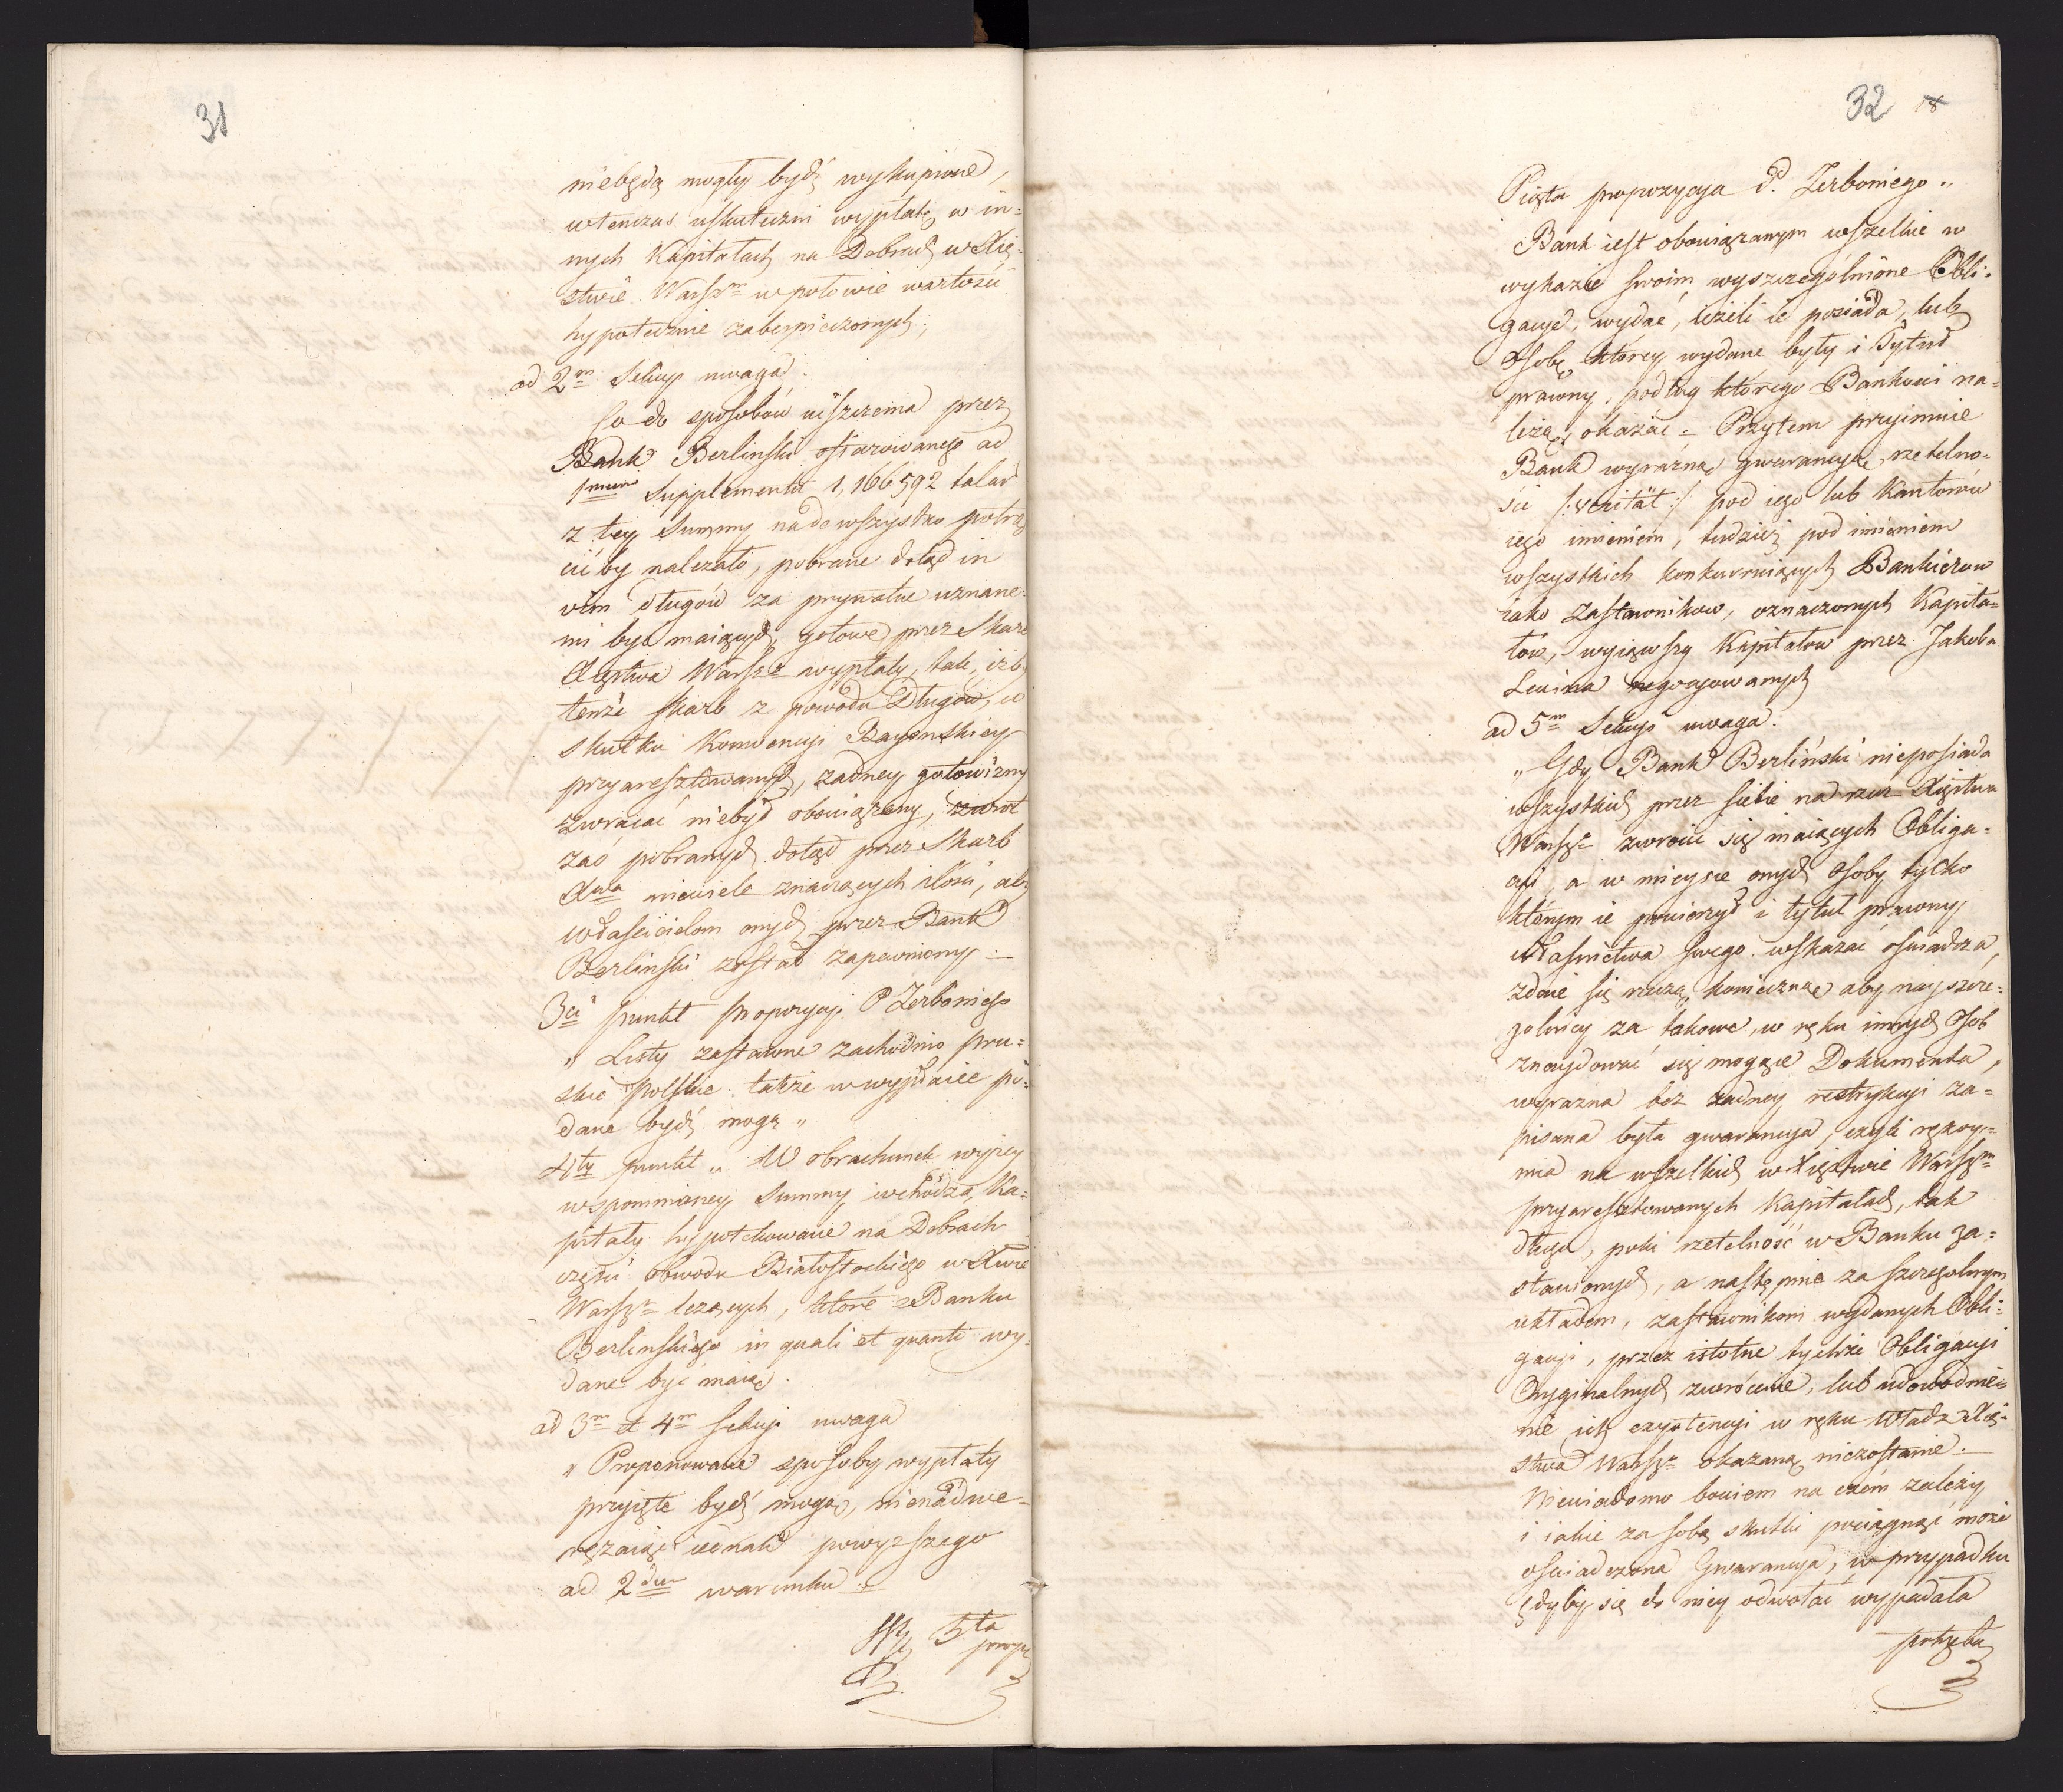 31
niebędą mogły bydź wykupione,
wtenczas uskuteczni wypłatę w in=
nych Kapitałach na Dobrach w Xię=
stwie Warszm w połowie wartości
hypotecznie zabezpieczonych.,
ad 2m Sekcyi uwaga:
Co do sposobów uiszczenia przez
Bank Berlinski ofiarowanego ad
1mum Supplementu 1,166592 talar
z tey Summy nadewszystko potrą
cić by należało, pobrane dotąd in
vim długów za prywatne uznane=
mi być maiących, gotowe przez Skarb
Xięstwa Warsze wypłaty, tak, iżby
tenże skarb z powodu Długów, w
skutku Konwencyi Bayonskiey
przyaresztowanych, żadney gotowizny
zwracać niebył obowiązany, zwrot
zaś pobranych dotąd przez Skarb
Xwa niewiele znaczących ilości, aby
właścicielom onych przez Bank
Berlinski został zapewniony.—
3ci punkt propozycyi P Zerboniego
„ Listy zastawne zachodnio pru=
skie polskie także w wypłacie po=
dane bydź mogą „
4ty punkt „ W obrachunek wyżey
wspomnioney Summy wchodzą Ka=
pitały hypotekowane na Dobrach
części obwodu Białostockiego w Xwie
Warsze leżących, które z Banku
Berlinskiego in quali et quanti wy=
dane być maią.
ad 3m et 4m Sekcyi uwaga
„ Proponowane sposoby wypłaty
przyięte bydź mogą, nienadwe=
rężaiąc iednak powyższego
ad 2dum warunku.
5ta
propo
32 18
Piąta propozycyja P. Zerboniego „
Bank iest obowiązanym wszelkie w
wykazie swoim wyszczególnione Obli=
gacye, wydać, ieżeli ie posiada, lub
Osobę którey wydane były i Tytuł
prawny, podług którego Bankowi na=
leżą, okazać = Przytem przyimuie
Bank wyraźną gwarancyą rzetelno=
ści /: verität :/ pod iego lub Kantorów
iego imieniem, tudzież pod imieniem
wszystkich konkurruiących Bankierow
iako Zastawnikow, oznaczonych Kapita=
łów, wyiąwszy Kapitałów przez Jakuba
Lewina negocyowanych
ad 5m Sekcyi uwaga:
„ Gdy Bank Berliński nieposiada
wszystkich przez siebie na rzecz Xięstwa
Warsze zwrócić się maiących Obliga=
cyi, a w mieysce onych Osoby tylko
którym ie powierzył i tytuł prawny
Własnictwa swego wskazać oświadcza,
zdaie się rzeczą konieczną aby nayszcze=
gólniey za takowe, w ręku innych Osob
znaydować się mogące Dokumenta,
wyrazna bez żadney restrykcyi za=
pisana była gwarancya, czyli rękoy=
mia na wszelkich w Xięstwie Warszm
przyaresztowanych Kapitałach, tak
długo, poki rzetelność w Banku za=
stawionych, a następnie za szczególnym
układem, zastawnikom wydanych Obli=
gacyi, przez istotne tychże Obligacyi
Oryginalnych zwrócenie, lub udowodnie=
nie ich exystencyi w ręku Władz Xię=
stwa Warsze okazaną niezostanie.—
Niewiadomo bowiem na czém zależy
i iakie za sobą skutki pociągnąć może
oświadczona Gwarancya, w przypadku
gdyby się do niey odwołać wypadała
potrzeba